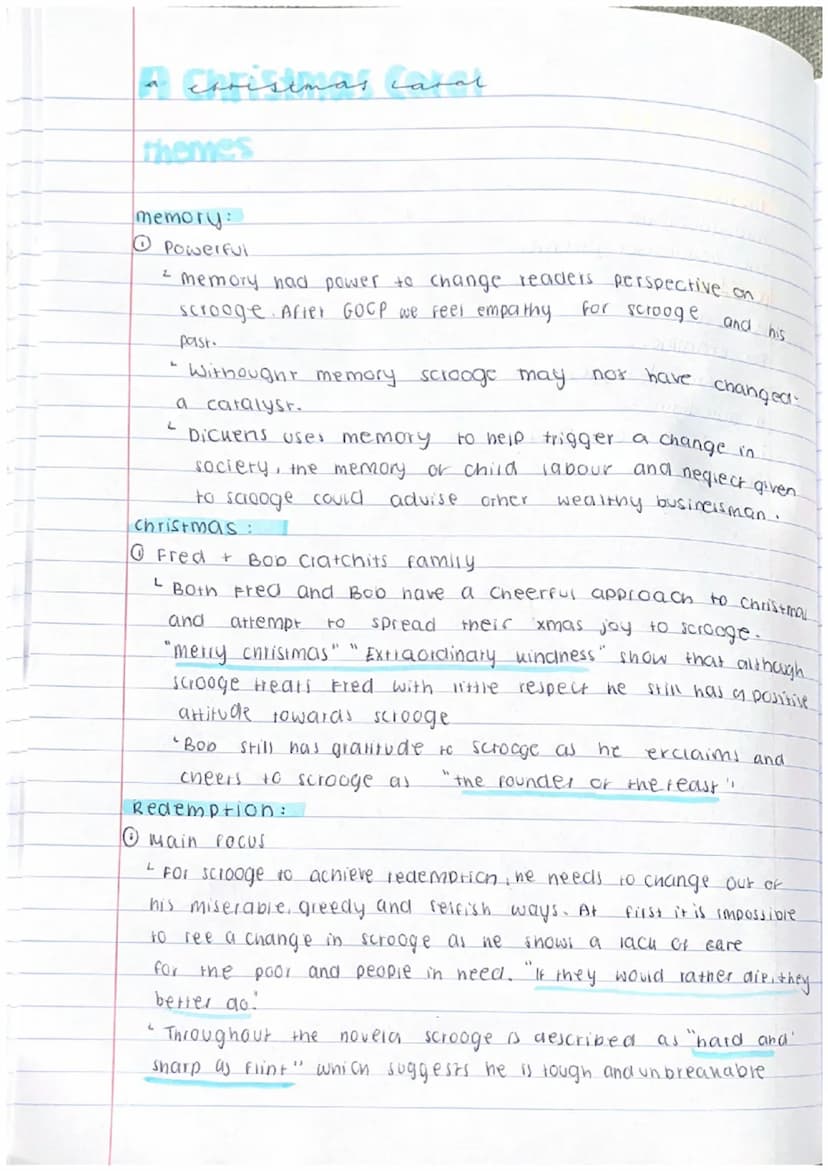 A Christmas Carol
a christmas carol
themes
memory:
① Powerful
↳ memory had power to change readers perspective on
scrooge. After GOCP we feel empathy for scrooge and his
past.
↳ Withought memory scrooge may not have changed-
a catalyst.
↳ Dickens uses memory to help trigger a change in
society, the memory of child labour and neglect given
to scrooge could advise other wealthy businessman.
christmas:
① Fred + Bob Cratchits family
↳ Both Fred and Bob have a cheerful approach to christmas
and attempt to spread their xmas joy to scrooge.
"merry christmas" "Extraordinary kindness" show that although
scrooge treats Fred with little respect he still has a positive
attitude towards scrooge
↳ Bob still has gratitude to scrooge as he exclaims and
cheers to scrooge as "the founder of the feast"
Redemption:
① main focus
↳ For scrooge to achieve redemption, he needs to change out of
his miserable, greedy and selfish ways. At first it is impossible
to see a change in scrooge as he shows a lack of care
for the poor and people in need. "If they would rather die, they
better do."
↳ Throughout the novela scrooge is described as "hard and
sharp as flint" which suggests he is tough and unbreakable